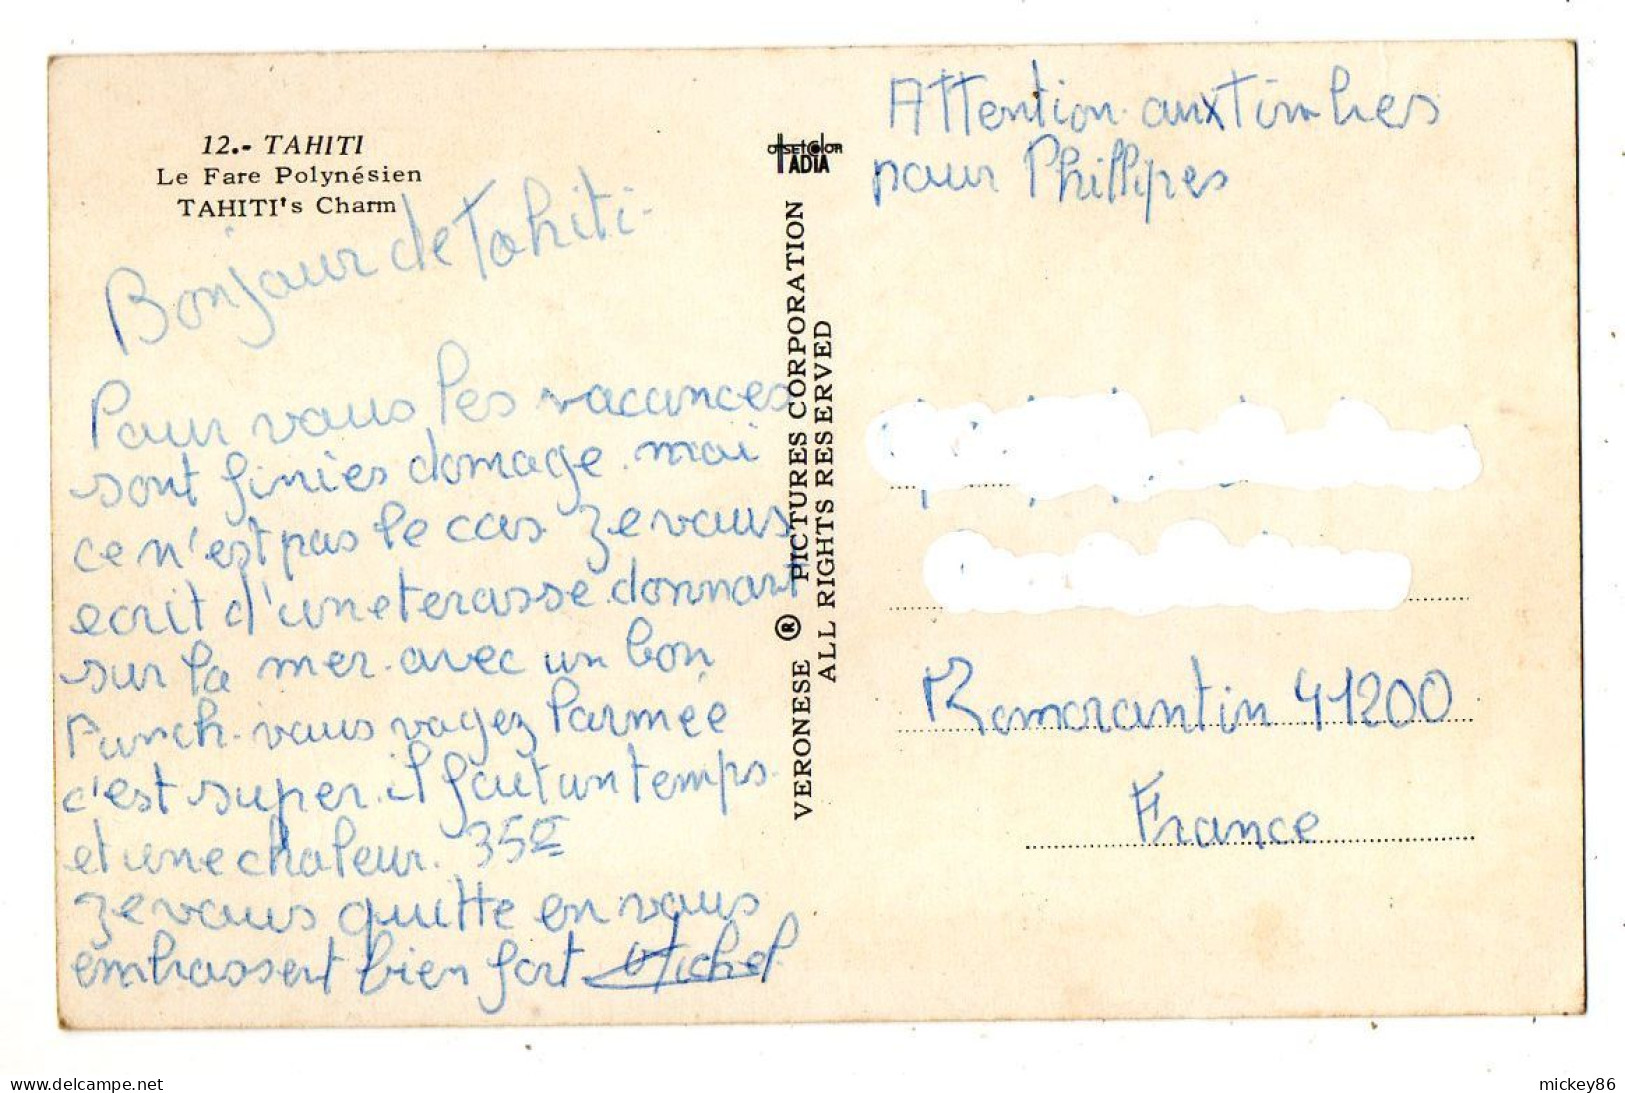 12.- TAHITI
Le Fare Polynésien
TAHITI's Charm
Bonjour de Tahiti.
Pour vous les vacances
sont finies domage. moi
ce n'est pas le cas. Je vous
ecrit d'une terasse donnant
sur la mer. avec un bon
Punch. vous voyez l'armée
c'est super. il fait un temps.
et une chaleur. 35°
Je vous quitte en vous
embrassent bien fort Michel
offsetcolor
ADIA
VERONESE ® PICTURES CORPORATION
ALL RIGHTS RESERVED
Attention aux Timbres
pour Phillipes
Romorantin 41200
France
delcampe.net
mickey86